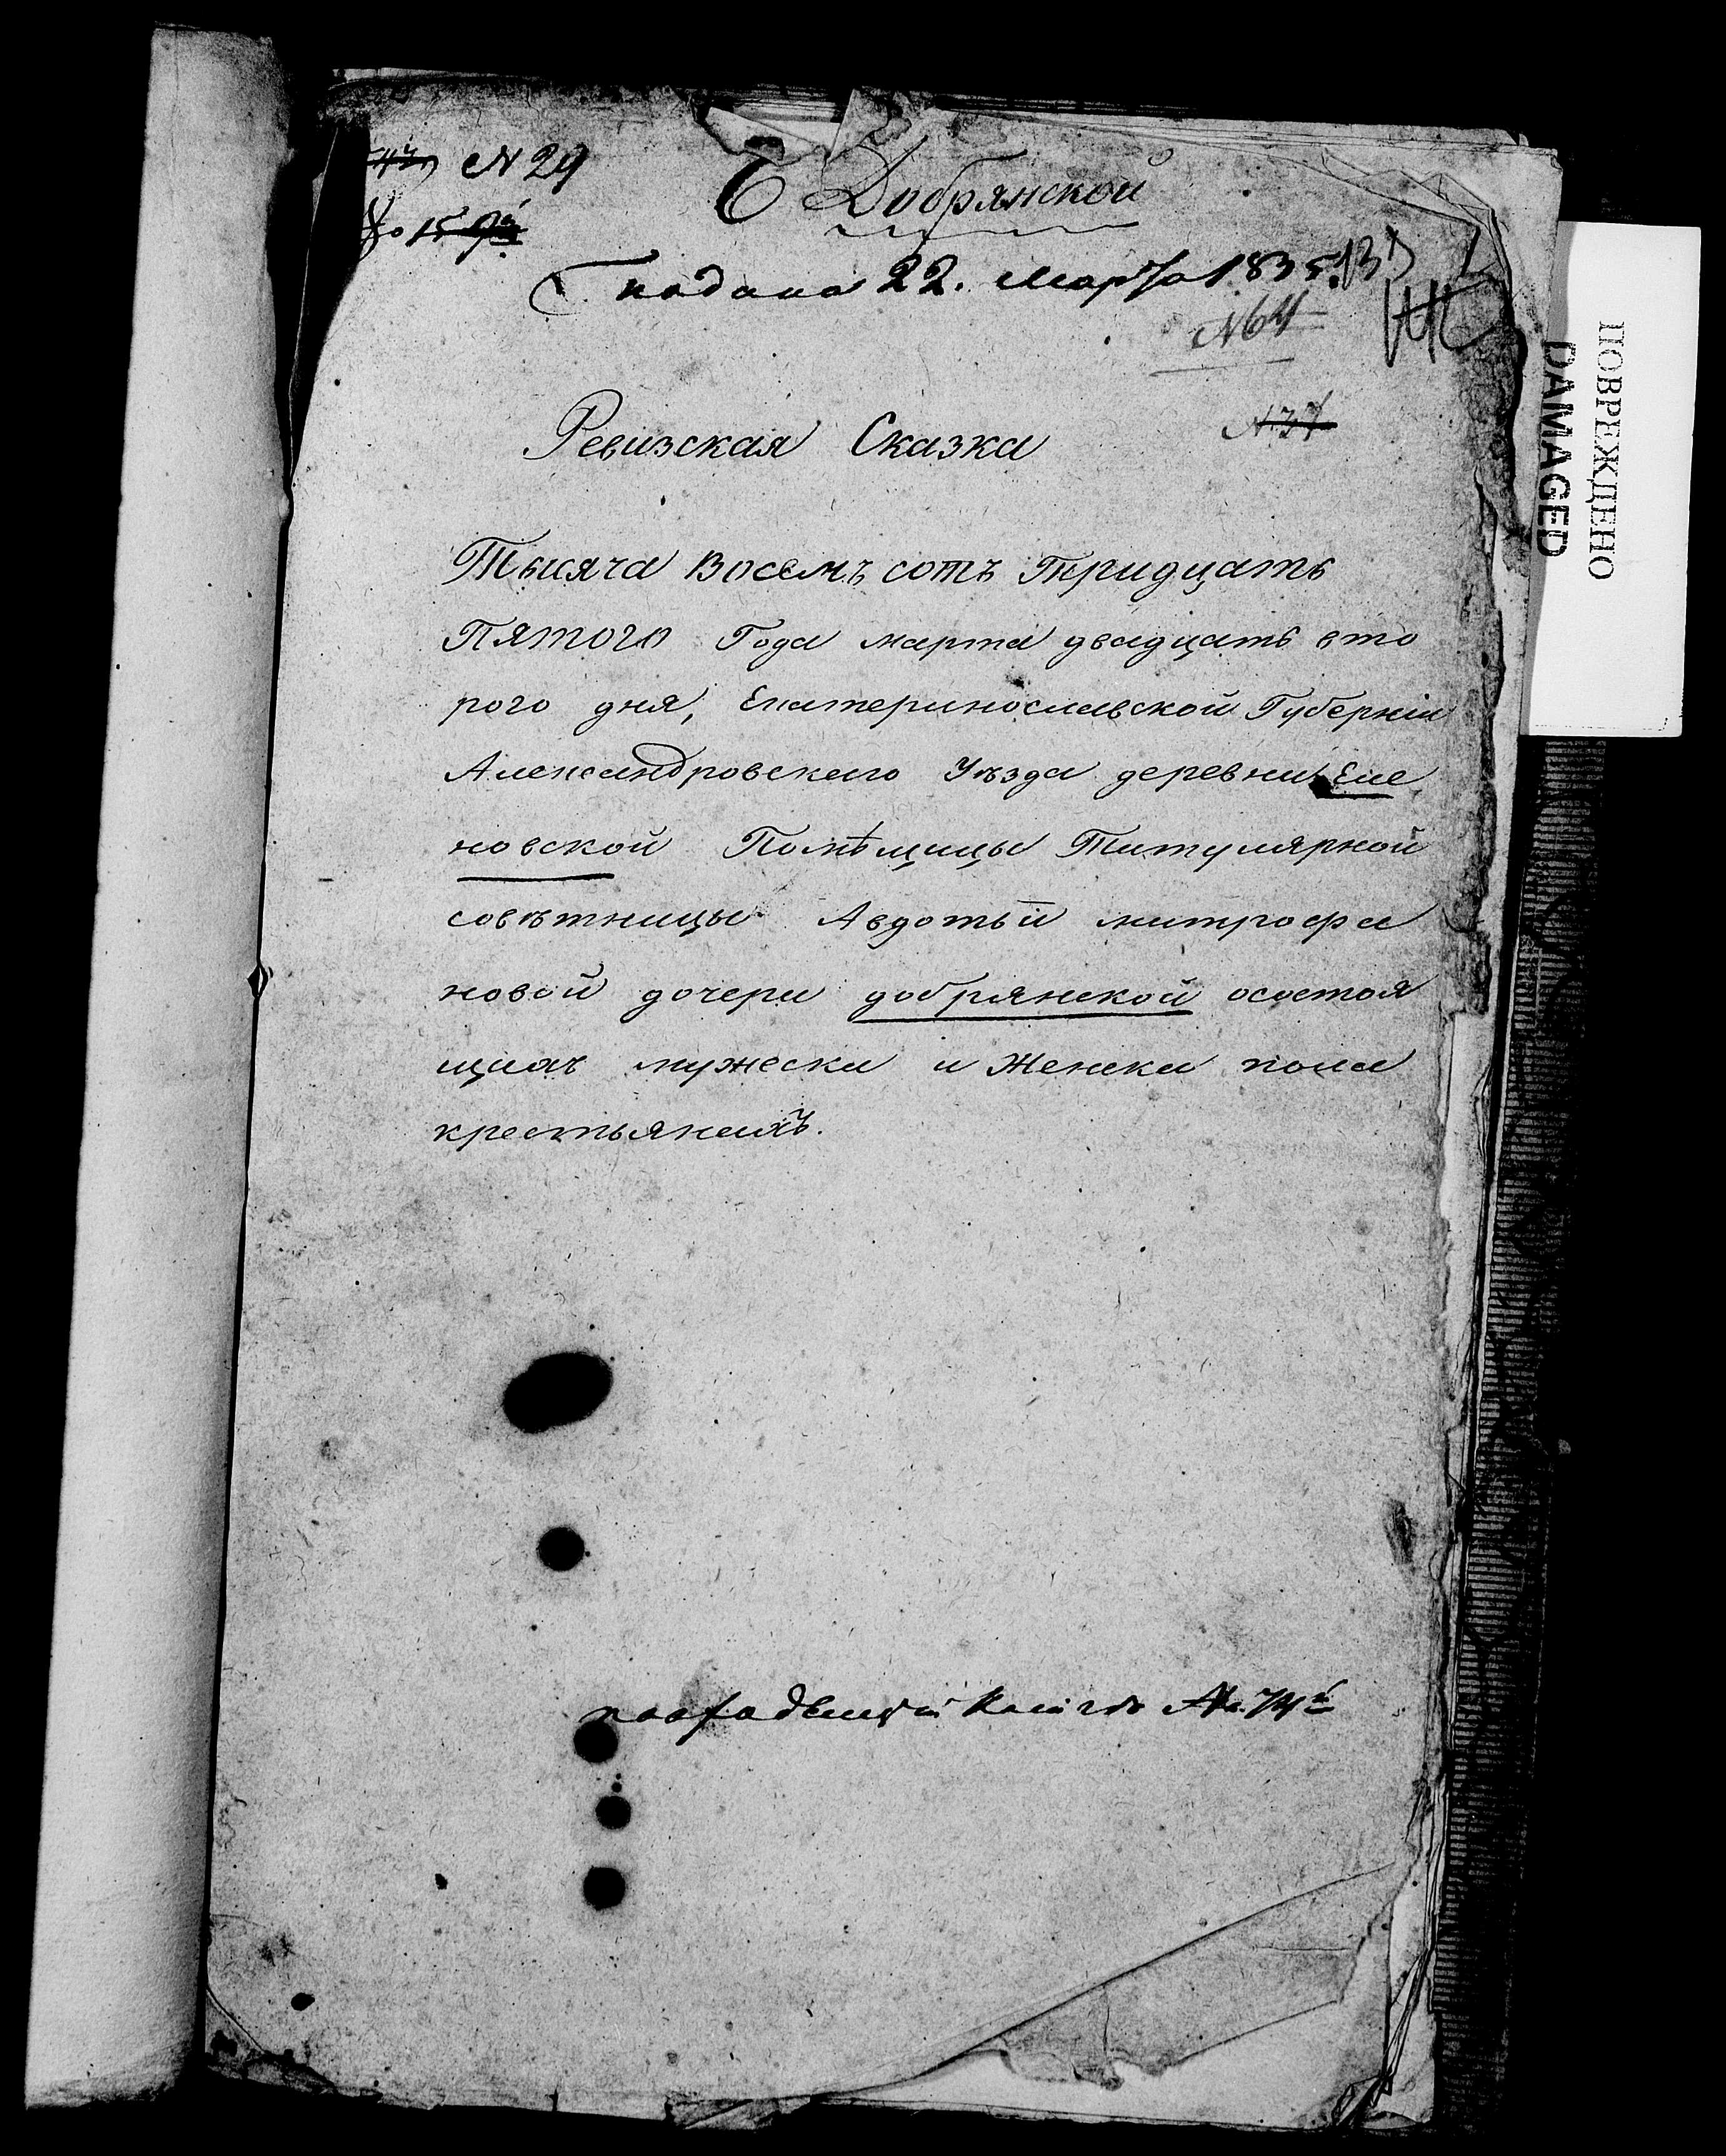 N 29
Добрянской
подана 22. Марта 1835.
N 64
N 37
Ревизская Сказка
Тысяча Восемъ сотъ Тридцать
Пятого Года марта двадцать вто
рого дня, Екатеринославской Губерніи
Александровскаго Уѣзда деревни Еле
новской Помѣщицы Титулярной
совѣтницы Авдотьи митрофа
новой дочери добрянской осостоя
щихъ мужеска и Женска пола
крестьянахъ.
ПОВРЕЖДЕНО
DAMAGED